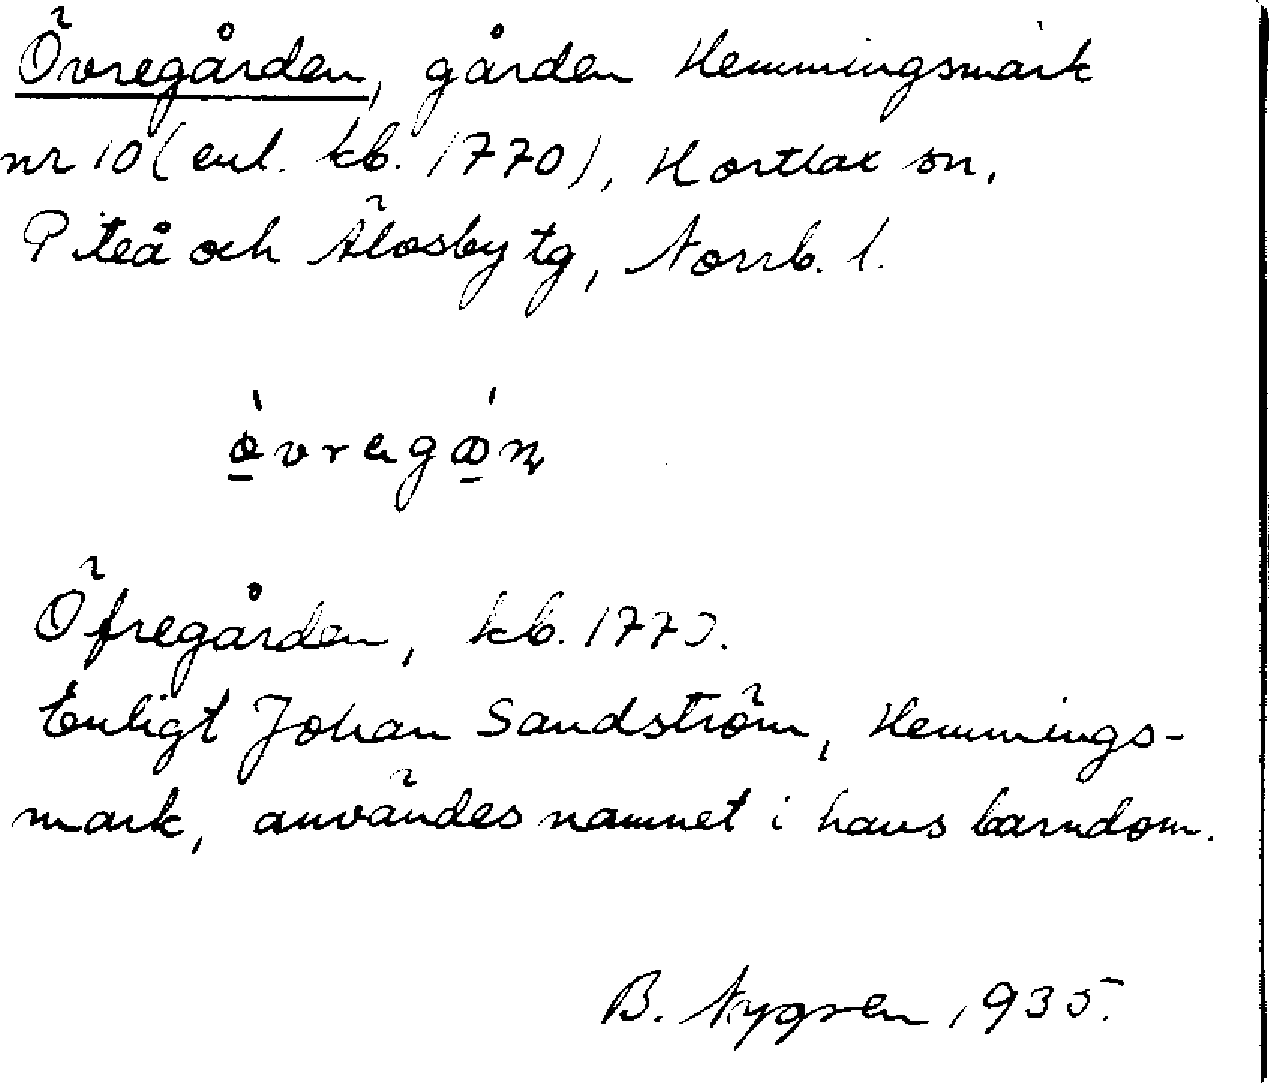 Övregården, gården Hemmingsmark
nr 10 (enl. kb. 1770), Hortlax sn,
Piteå och Älvsby tg, Norrb. l.
Öfregården, kb. 1770.
Enligt Johan Sandström, Hemmings-
mark, användes namnet i hans barndom.
B. Nygren 1935.